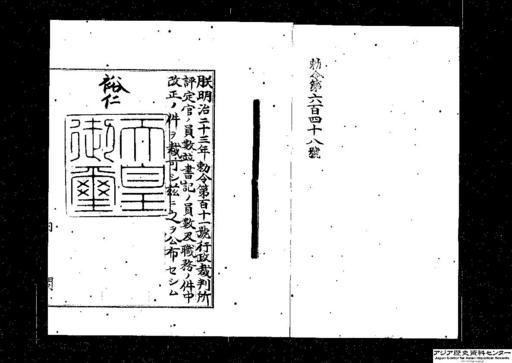 勅令第六百四十八號
朕明治二十三年勅令第百十一號行政裁判所
評定官ノ員數竝書記ノ員數及職務ノ件中
改正ノ件ヲ裁可シ茲ニ之ヲ公布セシム
裕仁
天皇
御璽
内閣
アジア歴史資料センター
Japan Center for Asian Historical Records